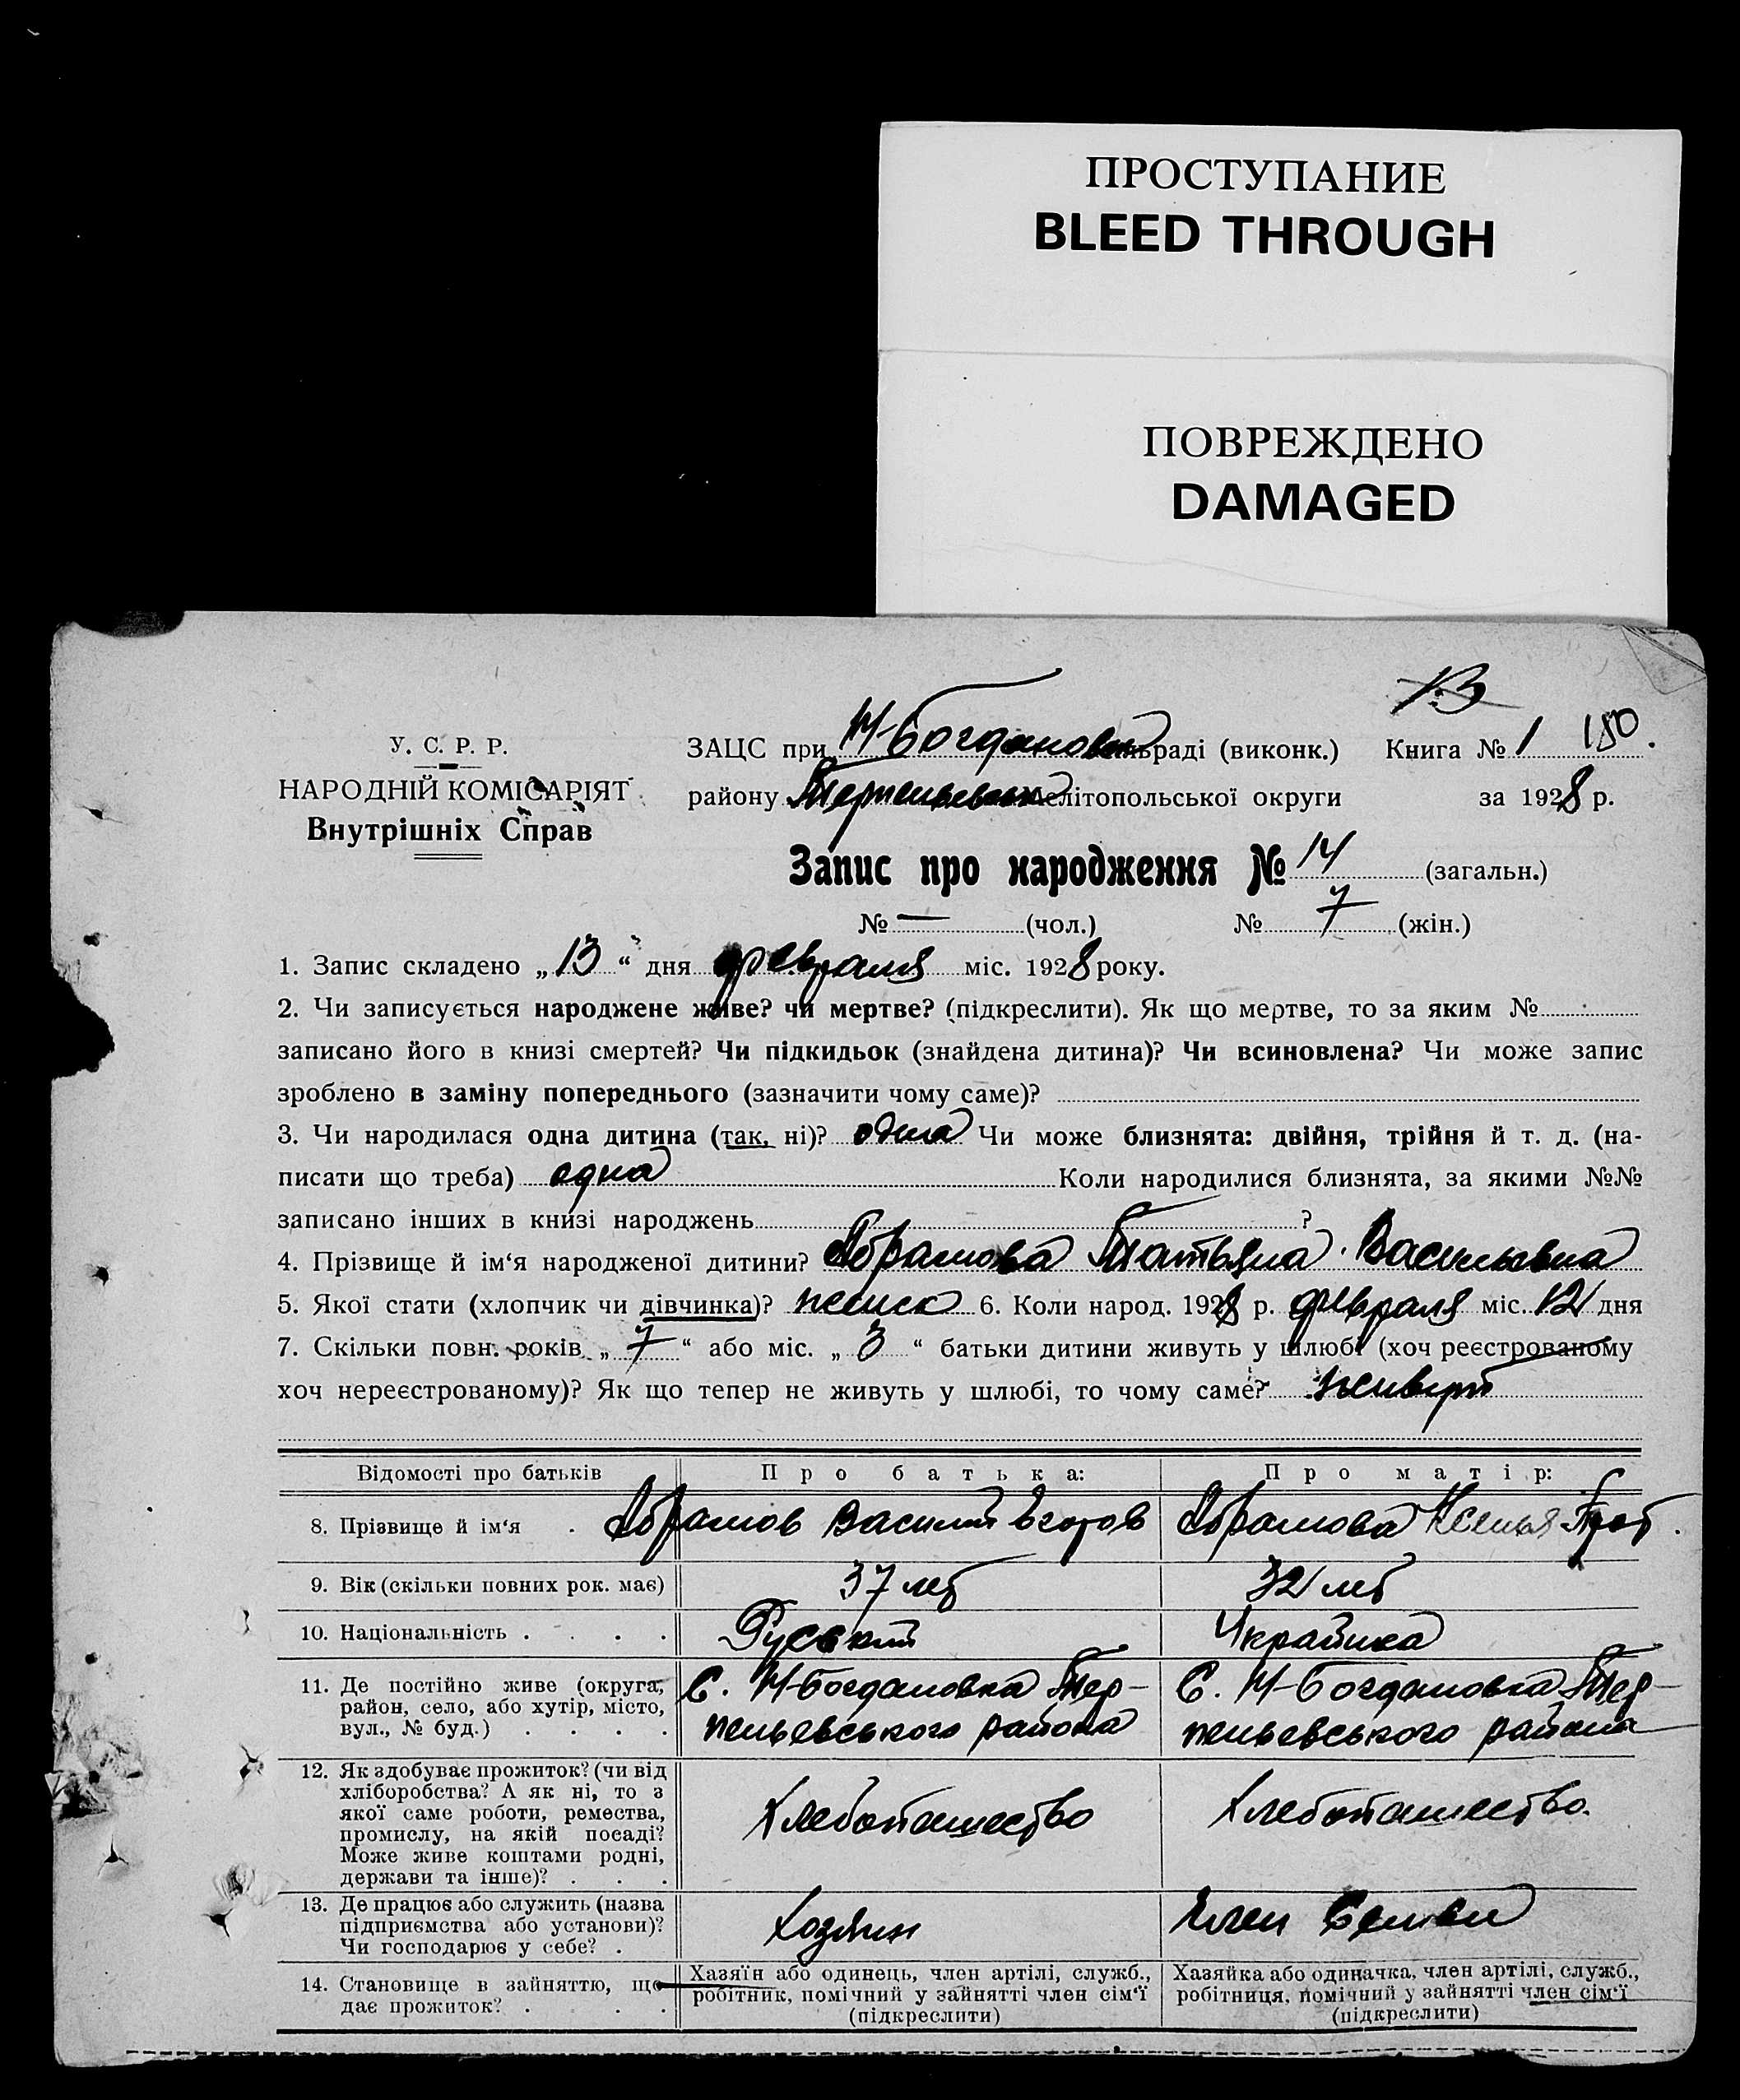 ПРОСТУПАНИЕ
BLEED THROUGH
ПОВРЕЖДЕНО
DAMAGED
13
У. С. Р. Р.
НАРОДНІЙ КОМІСАРІЯТ
Внутрішніх Справ
ЗАЦС при М-Богдановск раді (виконк.) Книга № 1 150.
району Терпеньевськ Мелітопольської округи за 1928 р.
Запис про народження № 14 (загальн.)
№ — (чол.) № 7 (жін.)
1. Запис складено „13“ дня февраля міс. 1928 року.
2. Чи записується народжене живе? чи мертве? (підкреслити). Як що мертве, то за яким №
записано його в книзі смертей? Чи підкидьок (знайдена дитина)? Чи всиновлена? Чи може запис
зроблено в заміну попереднього (зазначити чому саме)?
3. Чи народилася одна дитина (так, ні)? одна Чи може близнята: двійня, трійня й т. д. (на-
писати що треба) одна Коли народилися близнята, за якими №№
записано інших в книзі народжень ?
4. Прізвище й ім‘я народженої дитини? Абрамова Татьяна Васильевна
5. Якої стати (хлопчик чи дівчинка)? женск 6. Коли народ. 1928 р. февраля міс. 12 дня
7. Скільки повн. років „7“ або міс. „3“ батьки дитини живуть у шлюбі (хоч реєстрованому
хоч нереєстрованому)? Як що тепер не живуть у шлюбі, то чому саме? живут
Відомості про батьків Про батька: Про матір:
8. Прізвище й ім‘я . Абрамов Василий Егоров Абрамова Ксенья
9. Вік (скільки повних рок. має) 37 лет 32 лет
10. Національність . . . . Руский Украинка
11. Де постійно живе (округа, район, село, або хутір, місто, вул., № буд.) . . . .
С. М-Богдановка Тер-
пеньевського района
С. М-Богдановка Тер-
пеньевського района
12. Як здобуває прожиток? (чи від
хліборобства? А як ні, то з
якої саме роботи, ремества,
промислу, на якій посаді?
Може живе коштами родні,
держави та інше)? . . .
Хлебопашество
Хлебопашество.
13. Де працює або служить (назва
підприємства або установи)?
Чи господарює у себе? .
Хозяин
Член Семьи
14. Становище в зайняттю, що
дає прожиток? . . .
Хазяїн або одинець, член артілі, служб.,
робітник, помічний у зайнятті член сім‘ї
(підкреслити)
Хазяйка або одиначка, член артілі, служб.,
робітниця, помічний у зайнятті член сім‘ї
(підкреслити)